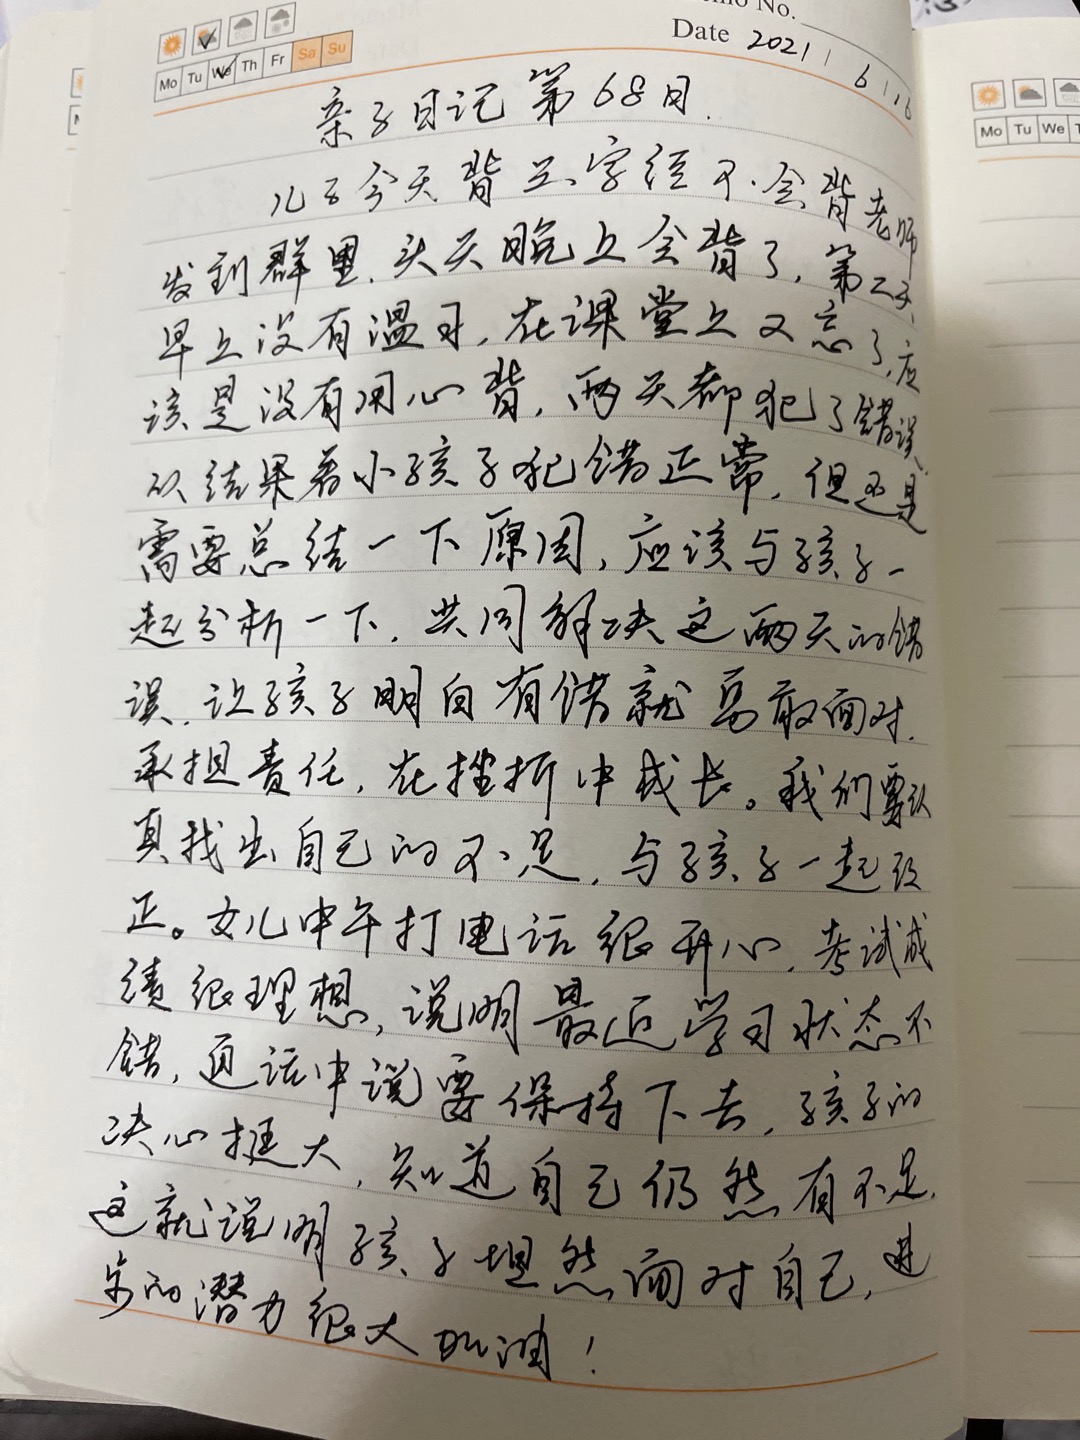 Memo No.
Date 2021/6/16
Mo Tu We Th Fr Sa Su
亲子日记第68日.
儿子今天背三字经不会背老师
发到群里,头天晚上会背了,第二天
早上没有温习,在课堂上又忘了,应
该是没有用心背,两天都犯了错误,
从结果看小孩子犯错正常,但还是
需要总结一下原因,应该与孩子一
起分析一下,共同解决这两天的错
误,让孩子明白有错就勇敢面对,
承担责任,在挫折中成长。我们要认
真找出自己的不足,与孩子一起改
正。女儿中午打电话很开心,考试成
绩很理想,说明最近学习状态不
错,通话中说要保持下去,孩子的
决心挺大,知道自己仍然有不足,
这就说明孩子坦然面对自己,进
步的潜力很大加油!
Mo Tu We T